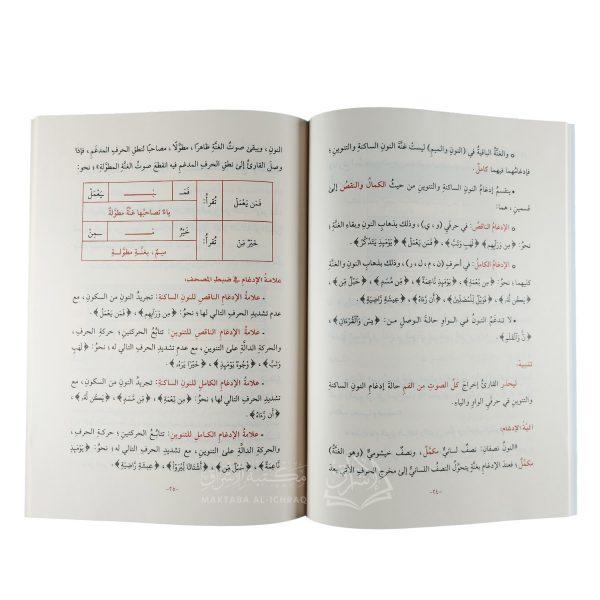 • والغنَّة الباقية في (النون والميم) ليستْ غنَّة النون الساكنة والتنوين؛
فإدغامُهما فيهما كاملٌ.
• ينقسم إدغامُ النون الساكنة والتنوين من حيثُ الكمالُ والنقصُ إلى
قسمين، هما:
• الإدغامُ الناقصُ: في حرفَي (و، ي)، وذلك بذهاب النون وبقاء الغنَّة،
نحوُ: ﴿مِن وَرَآئِهِم﴾، ﴿لَهَبٍ وَتَبَّ﴾، ﴿يَوْمَئِذٍ يَتَذَكَّرُ﴾.
• الإدغامُ الكاملُ: في أحرفِ (ن، م، ل، ر)، وذلك بذهاب النون والغنَّة
كليهما؛ نحوُ: ﴿مِن نِّعْمَةٍ﴾، ﴿يَوْمَئِذٍ نَّاعِمَةٌ﴾، ﴿مِن مَّسَدٍ﴾، ﴿حَبْلٌ مِّن﴾،
﴿يَكُن لَّهُ﴾، ﴿فَوَيْلٌ لِّلْمُصَلِّينَ﴾، ﴿أَن رَّءَاهُ﴾، ﴿عِيشَةٍ رَّاضِيَةٍ﴾.
• لا تدغَمُ النون في الواو حالةَ الوصلِ من: ﴿يس وَٱلْقُرْءَانِ﴾،
﴿نٓ وَٱلْقَلَمِ﴾.
تنبيه:
ليحذرِ القارئُ إخراجَ كلِّ الصوتِ من الفمِ حالةَ إدغامِ النون الساكنة
والتنوين في حرفَي الواو والياء.
آليةُ الإدغام:
«النونُ نصفان: نصفٌ لسانيٌّ مكمَّلٌ، ونصفٌ خيشوميٌّ (وهو الغنَّةُ)
مكمِّلٌ؛ فعندَ الإدغام بغنَّةٍ يتحوَّلُ النصفُ اللسانيُّ إلى مخرجِ الحرفِ الآتي بعدَ
-٢٤-
النون، ويبقى صوتُ الغنَّةِ ظاهرًا، مطوَّلًا، مصاحبًا لنطقِ الحرفِ المدغَمِ، فإذا
وصلَ القارئُ إلى نطقِ الحرفِ المدغَمِ فيه انقطعَ صوتُ الغنَّةِ المطوَّلةِ»؛ نحو:
فَمَن يَعْمَلْ تُقرأُ: فَمَـ ـيَعْمَلْ
ياءٌ تصاحبُها غنَّةٌ مطوَّلةٌ
خَيْرٌ مِّنْ تُقرأُ: خَيْرُ ـمِنْ
ميمٌ، بغنَّةٍ مطوَّلةٍ
علامةُ الإدغام في ضبط المصحف:
• علامةُ الإدغام الناقص للنون الساكنة: تجريدُ النون من السكون، مع
عدم تشديد الحرف التالي لها؛ نحوُ: ﴿مِن وَرَآئِهِم﴾، ﴿فَمَن يَعْمَلْ﴾.
• علامةُ الإدغام الناقص للتنوين: تتابُعُ الحركتين؛ حركةِ الحرف،
والحركةِ الدالَّةِ على التنوين، مع عدم تشديد الحرف التالي له؛ نحوُ: ﴿لَهَبٍ
وَتَبَّ﴾، ﴿وُجُوهٌ يَوْمَئِذٍ﴾، ﴿خَيْرًا يَرَهُ﴾.
• علامةُ الإدغام الكامل للنون الساكنة: تجريدُ النون من السكون، مع
تشديد الحرف التالي لها؛ نحوُ: ﴿مِن نِّعْمَةٍ﴾، ﴿مِن مَّسَدٍ﴾، ﴿يَكُن لَّهُ﴾،
﴿أَن رَّءَاهُ﴾.
• علامةُ الإدغام الكامل للتنوين: تتابُعُ الحركتين؛ حركةِ الحرف،
والحركةِ الدالَّةِ على التنوين، مع تشديد الحرف التالي له؛ نحوُ: ﴿يَوْمَئِذٍ
نَّاعِمَةٌ﴾، ﴿حَبْلٌ مِّن﴾، ﴿أَشْتَاتًا لِّيُرَوْا﴾، ﴿عِيشَةٍ رَّاضِيَةٍ﴾.
-٢٥-
مكتبة الإشراق
MAKTABA AL-ICHRAQ